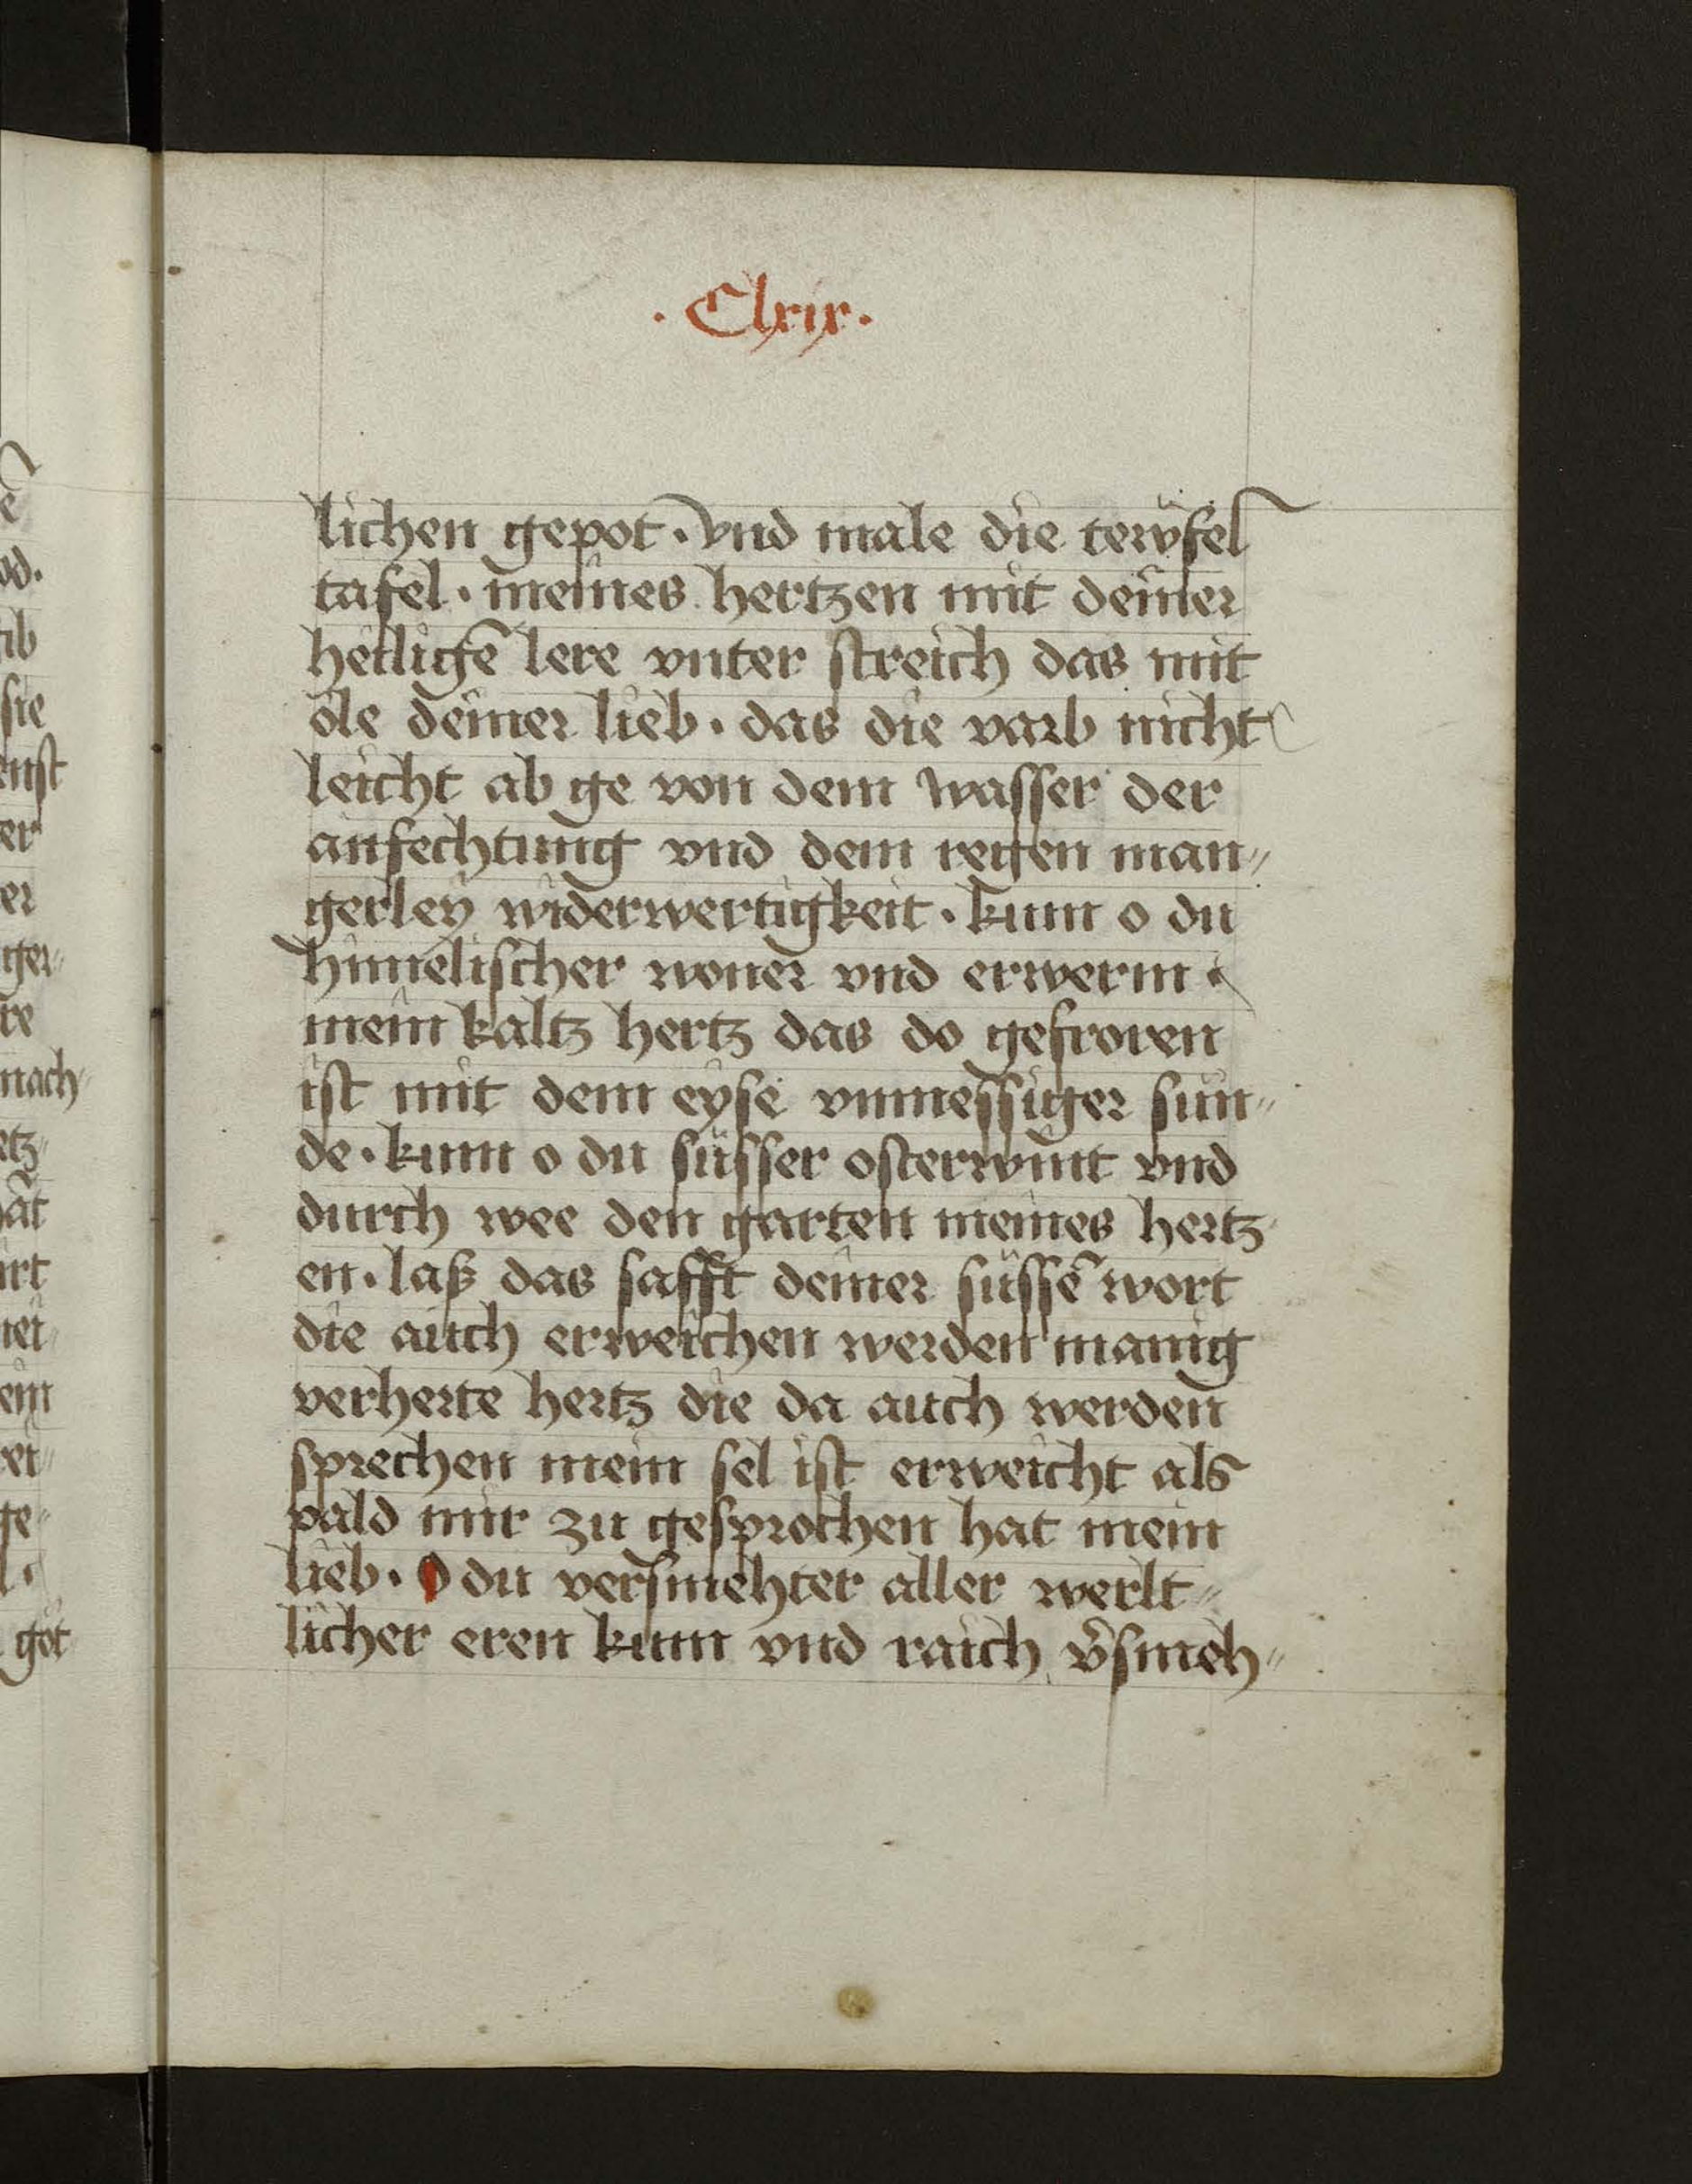 · Clxix ·
lichen gepot · vnd male die tewfel
tafel · meines hertzen mit deiner
heiligē lere vnter streich das mit
öle deiner lieb · das die varb nicht
leicht ab ge von dem wasser der
anfechtung vnd dem regen man〟
gerley widerwertigkeit · kum o du
himelischer woner vnd erwerm ·
mein kaltz hertz das do gefroren
ist mit dem eyse vnmessiger sun〟
de · kum o du süsser osterwint vnd
durch wee den garten meines hertz〟
en · laß das safft deiner süssē wort
die auch erweichen werden manig
verherte hertz die da auch werden
sprechen mein sel ist erweicht als
pald mir zu gesprochen hat mein
lieb · O du versmehter aller werlt〟
licher eren kum vnd raich v̄smeh〟